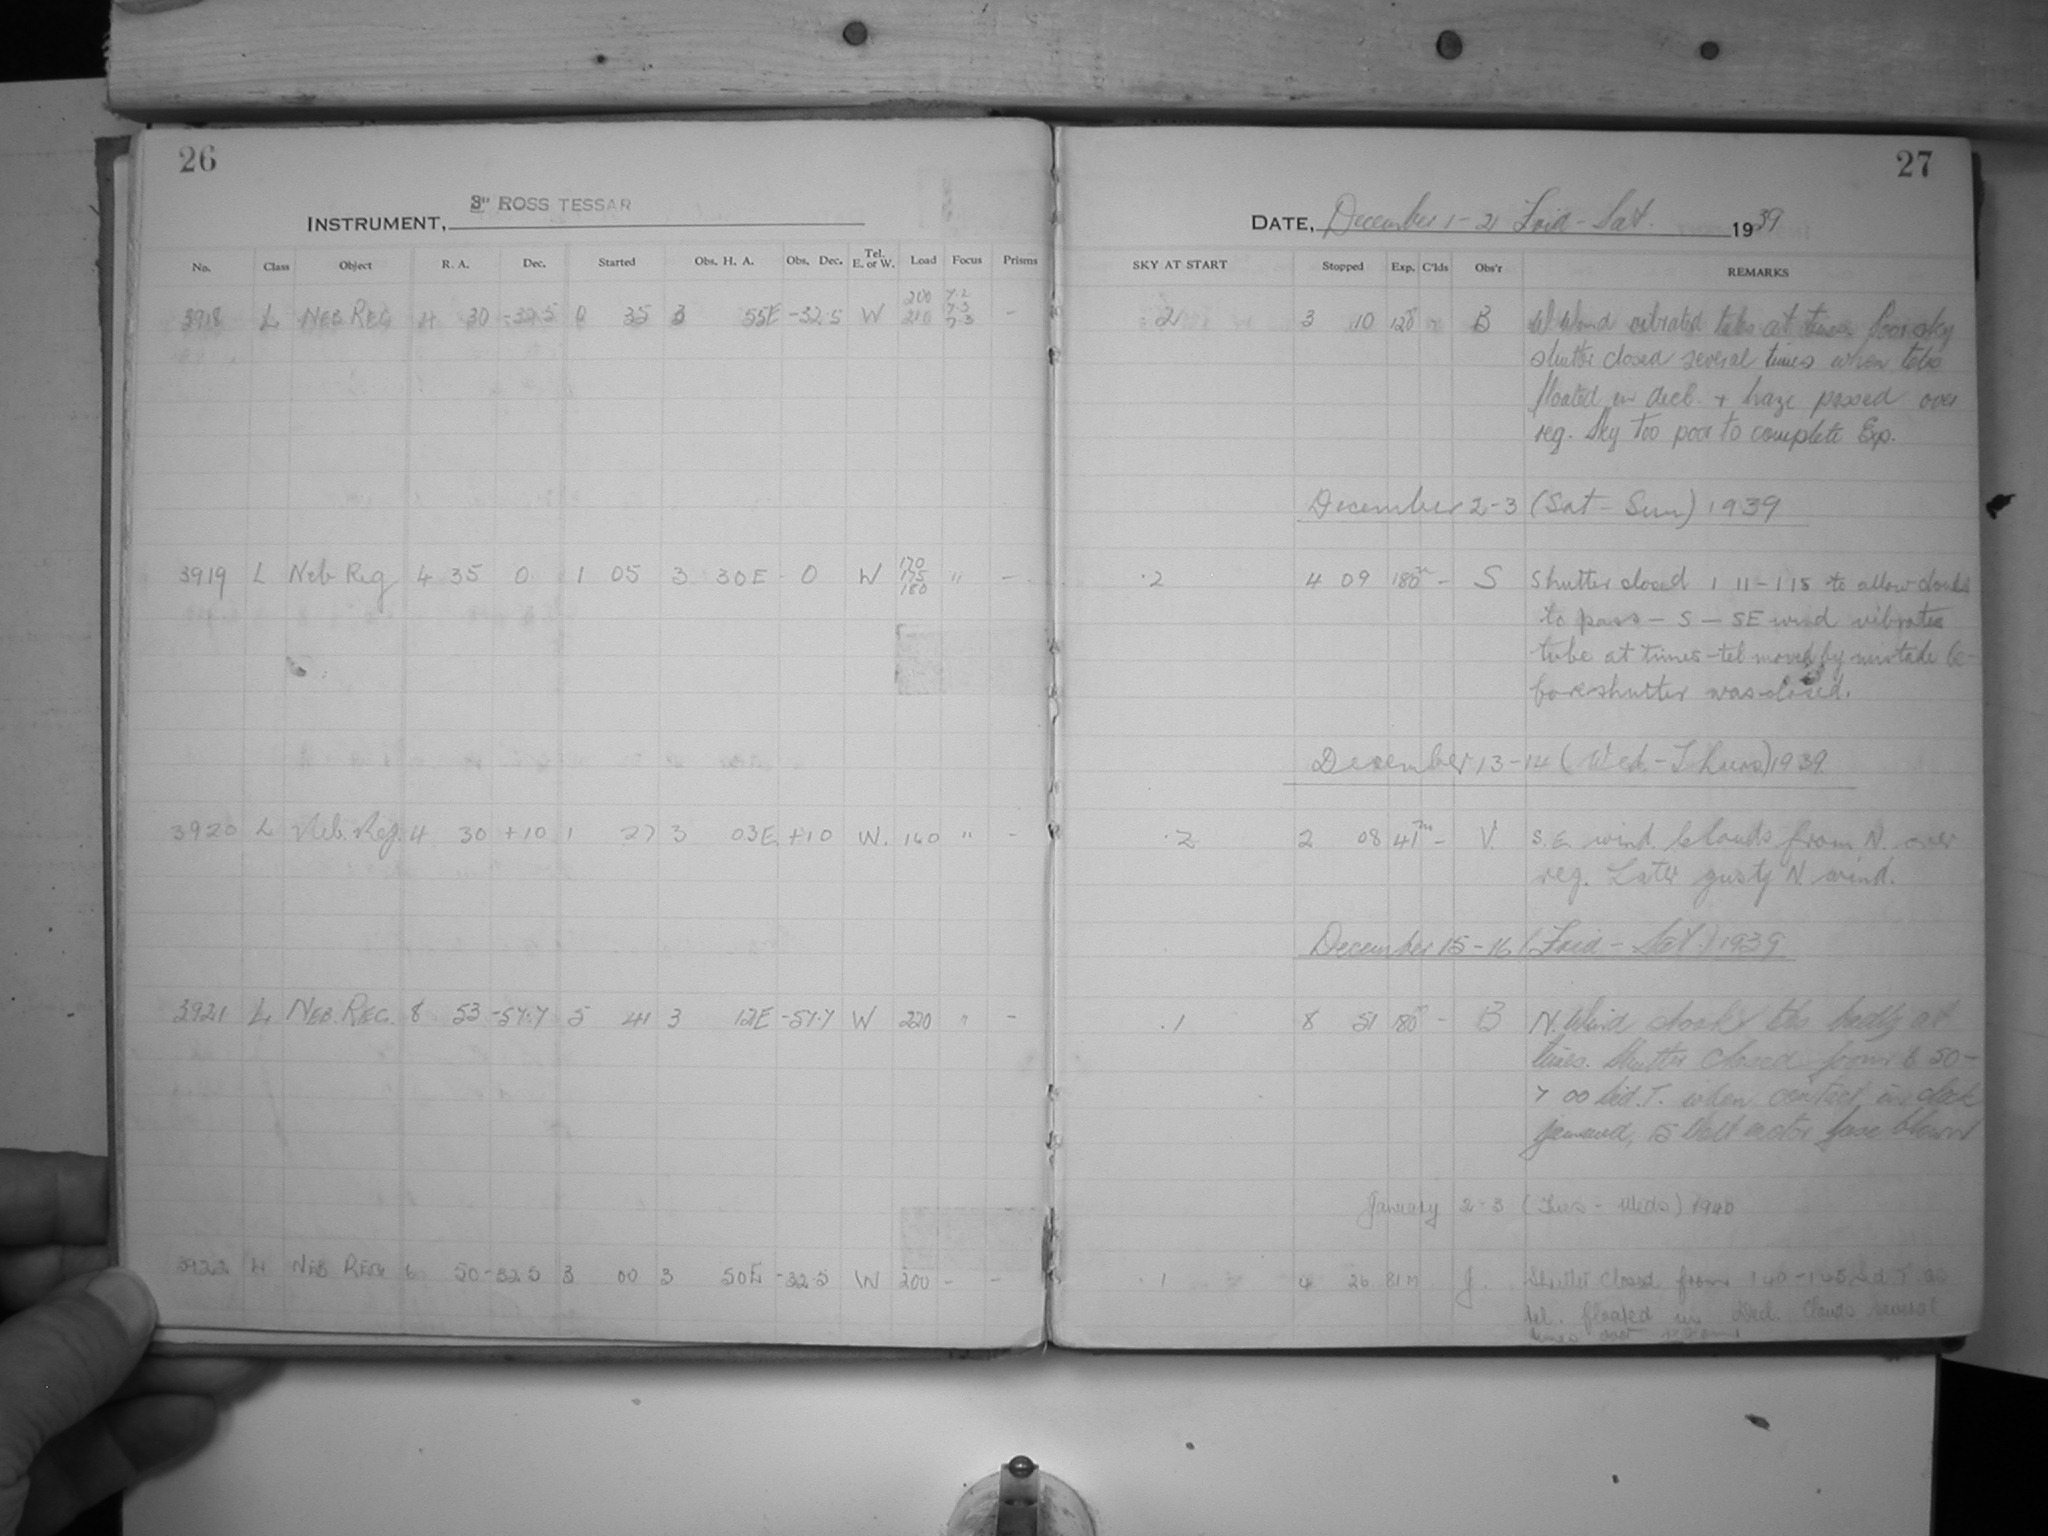 26
3" ROSS TESSAR
INSTRUMENT,
No. Class Object R. A. Dec. Started Obs. H. A. Obs. Dec. Tel. E. or W. Load Focus Prisms
3918 L NEB. REG. 4 30 -32.5 0 35 3 55E -32.5 W 200 210 7.2 7.3 7.3 -
3919 L Neb Reg 4 35 0 1 05 3 30E 0 W 170 175 180 " -
3920 L Neb. Reg. 4 30 +10 1 27 3 03E +10 W. 160 " -
3921 L NEB. REG. 8 53 -57.7 5 41 3 12E -57.7 W 220 " -
3922 L NEB REG 6 50 -32.5 3 00 3 50E -32.5 W 200 - -
27
DATE, December 1-2 Frid-Sat. 1939
SKY AT START Stopped Exp. C'lds Obs'r REMARKS
.2 3 10 B W Wind vibrated tube at times. Poor sky
shutter closed several times when tube
floated in decl. + haze passed over
reg. Sky too poor to complete Exp.
December 2-3 (Sat-Sun) 1939
.2 4 09 180m - S Shutter closed 1 11-1 15 to allow clouds
to pass - S - SE wind vibrates
tube at times - tel moved by mistake be-
fore shutter was closed.
December 13-14 (Wed.-Thurs) 1939.
.2 2 08 41m - V. S.E. wind. Clouds from N. over
reg. Later gusty N. wind.
December 15-16 (Frid-Sat.) 1939
.1 8 51 180m - B N. Wind shook tube badly at
times. Shutter closed from 6 50-
7 00 Sid. T. when contact in clock
jammed, 15 Volt motor fuse blown
January 2-3 (Tues-Weds) 1940
.1 4 26 81m J. Shutter closed from 1 40-1 45 Sid T. as
tel. floated in Decl. Clouds several
times over region